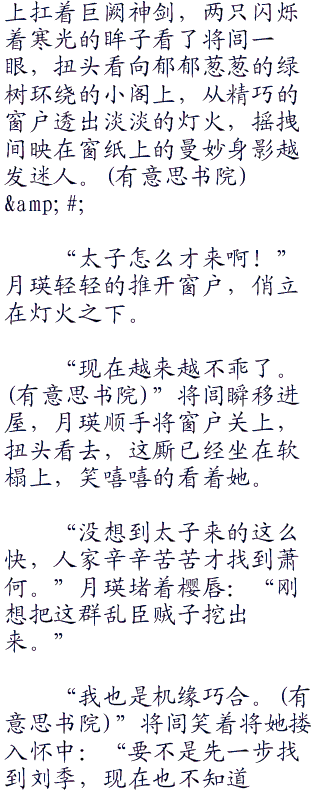 上扛着巨阙神剑，两只闪烁
着寒光的眸子看了将闾一
眼，扭头看向郁郁葱葱的绿
树环绕的小阁上，从精巧的
窗户透出淡淡的灯火，摇拽
间映在窗纸上的曼妙身影越
发迷人。(有意思书院)
&amp;#;
“太子怎么才来啊！”
月瑛轻轻的推开窗户，俏立
在灯火之下。
“现在越来越不乖了。
(有意思书院)”将闾瞬移进
屋，月瑛顺手将窗户关上，
扭头看去，这厮已经坐在软
榻上，笑嘻嘻的看着她。
“没想到太子来的这么
快，人家辛辛苦苦才找到萧
何。”月瑛堵着樱唇：“刚
想把这群乱臣贼子挖出
来。”
“我也是机缘巧合。(有
意思书院)”将闾笑着将她搂
入怀中：“要不是先一步找
到刘季，现在也不知道